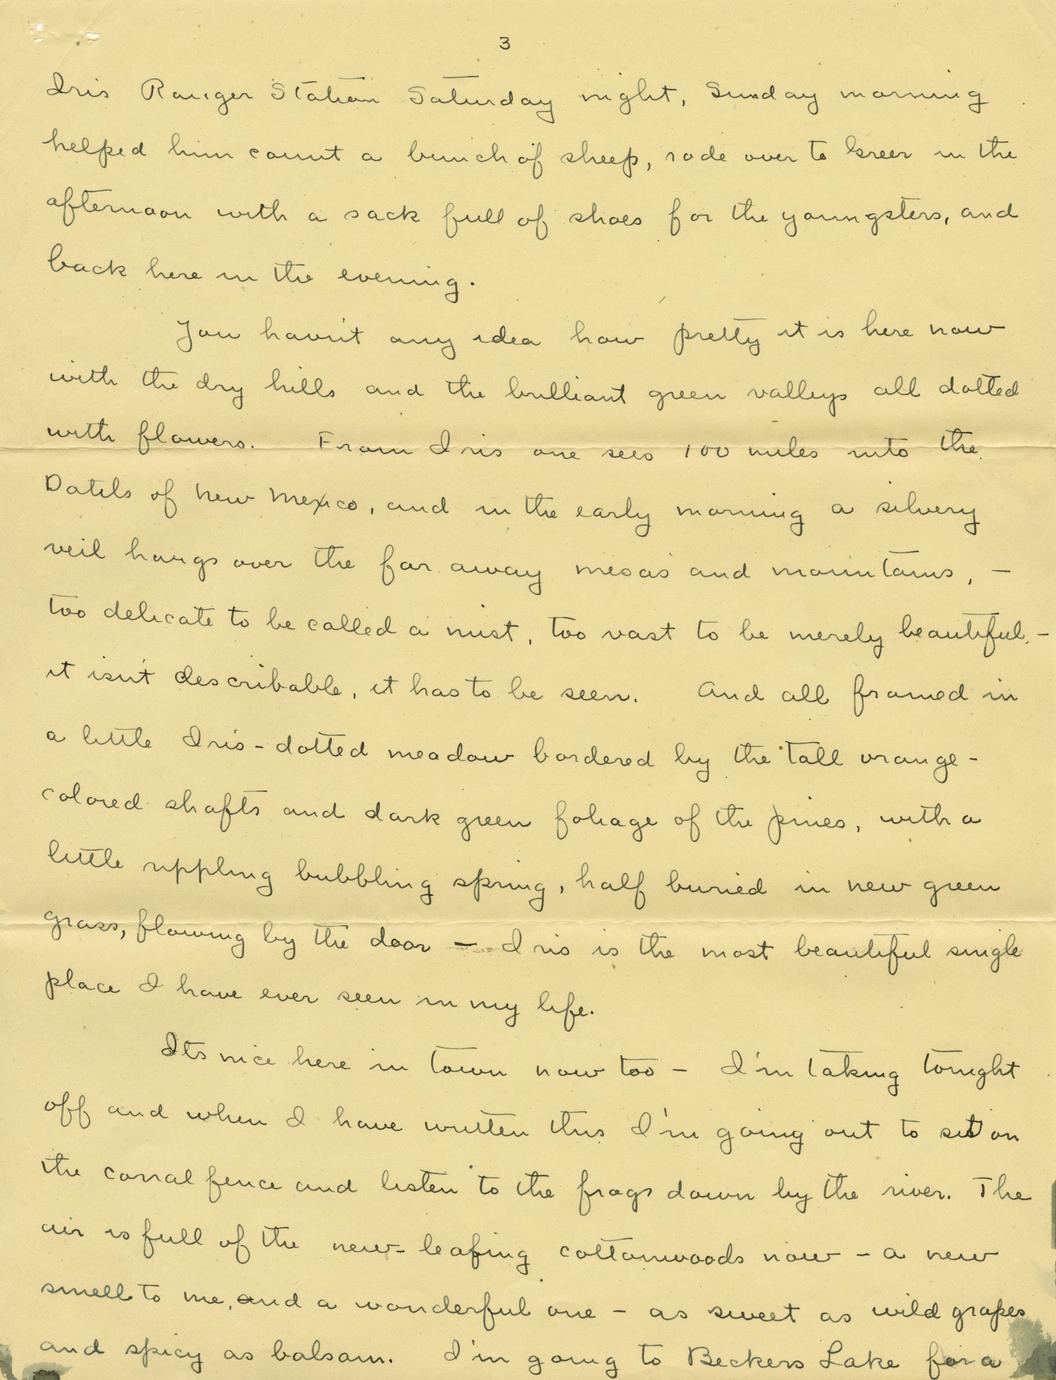 3
Iris Ranger Station Saturday night, Sunday morning
helped him count a bunch of sheep, rode over to Greer in the
afternoon with a sack full of shoes for the youngsters, and
back here in the evening.
You hav'nt any idea how pretty it is here now
with the dry hills and the brilliant green valleys all dotted
with flowers. From Iris one sees 100 miles into the
Datils of New Mexico, and in the early morning a silvery
veil hangs over the far away mesas and mountains, —
too delicate to be called a mist, too vast to be merely beautiful, —
it isn't describable, it has to be seen. And all framed in
a little Iris-dotted meadow bordered by the tall orange-
colored shafts and dark green foliage of the pines, with a
little rippling bubbling spring, half buried in new green
grass, flowing by the door — Iris is the most beautiful single
place I have ever seen in my life.
Its nice here in town now too — I'm taking tonight
off and when I have written this I'm going out to sit on
the corral fence and listen to the frogs down by the river. The
air is full of the new-leafing cottonwoods now — a new
smell to me, and a wonderful one — as sweet as wild grapes
and spicy as balsam. I'm going to Beckers Lake for a